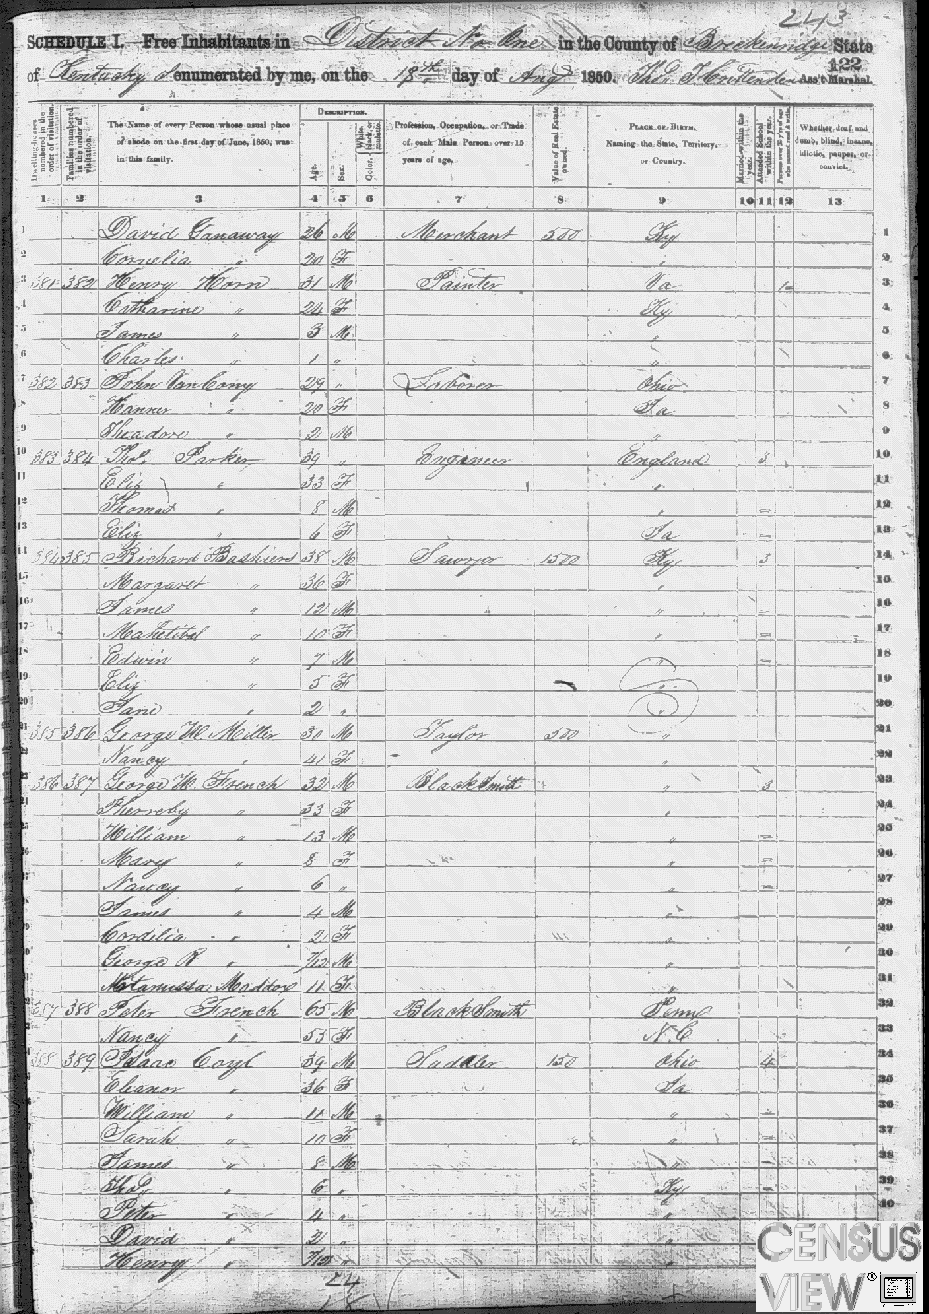 243
SCHEDULE I. Free Inhabitants in District No One in the County of Breckenridge State
of Kentucky enumerated by me, on the 18th day of Aug 1850. Thos Ass't Marshal.
122
Dwelling-houses numbered in the order of visitation.
Families numbered in the order of visitation.
The Name of every Person whose usual place of abode on the first day of June, 1850, was in this family.
DESCRIPTION.
Age.
Sex.
Color, White, black, or mulatto.
Profession, Occupation, or Trade of each Male Person over 15 years of age.
Value of Real Estate owned.
PLACE OF BIRTH. Naming the State, Territory, or Country.
Married within the year.
Attended School within the year.
Persons over 20 y'rs of age who cannot read & write.
Whether deaf and dumb, blind, insane, idiotic, pauper, or convict.
1 2 3 4 5 6 7 8 9 10 11 12 13
1 David Ganaway 26 M Merchant 500 Ky 1
2 Cornelia " 20 F " 2
3 381 382 Henry Horn 31 M Painter Va 1 3
4 Catharine " 24 F Ky 4
5 James " 3 M " 5
6 Charles " 1 " " 6
7 382 383 John Van 29 " Laborer Ohio 7
8 " 20 F Ia 8
9 Theadore " 2 M " 9
10 383 384 Thos. Parker 39 " Engineer England 3 10
11 Eliz " 33 F " 11
12 Thomas " 8 M " 12
13 Eliz " 6 F Ia 13
14 384 385 Richard 38 M Sawyer 1500 Ky 3 14
15 Margaret " 36 F " 15
16 James " 12 M " 16
17 " 10 F " 17
18 Edwin " 7 M " 18
19 Eliz " 5 F " 19
20 Jane " 2 " " 20
21 385 386 George W. Miller 30 M Taylor 300 " 21
22 Nancy " 41 F " 22
23 386 387 George W. French 32 M BlackSmith " 3 23
24 " 33 F " 24
25 William " 13 M " 25
26 Mary " 8 F " 26
27 Nancy " 6 " " 27
28 James " 4 M " 28
29 Cordelia " 2 F " 29
30 George R " 7/12 M " 30
31 Maddox 11 F " 31
32 387 388 Peter French 65 M BlackSmith Penn 32
Nancy " 53 F N.C 33
388 389 Isaac Coyl 39 M Saddler 150 Ohio 4 34
Eleanor " 36 F Ia 35
William " 11 M " 36
Sarah " 10 F " 37
James " 8 M " 38
" 6 " Ky 39
Peter " 4 " " 40
David " 2 " "
Henry " "
24
CENSUS
VIEW®